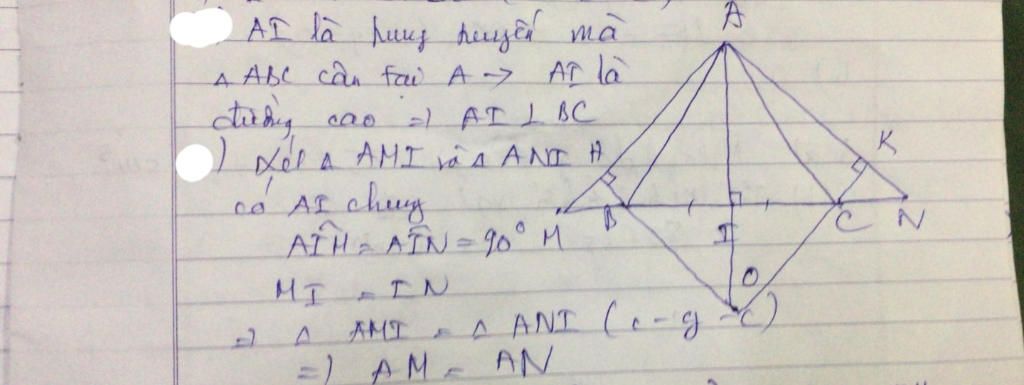 AI là trung tuyến mà
△ ABC cân tại A → AI là
đường cao => AI ⊥ BC
) Xét △ AMI và △ ANI
có AI chung
AIM = AIN = 90°
MI = IN
=> △ AMI = △ ANI (c-g-c)
=> AM = AN
A
H
K
M
B
I
C
N
O